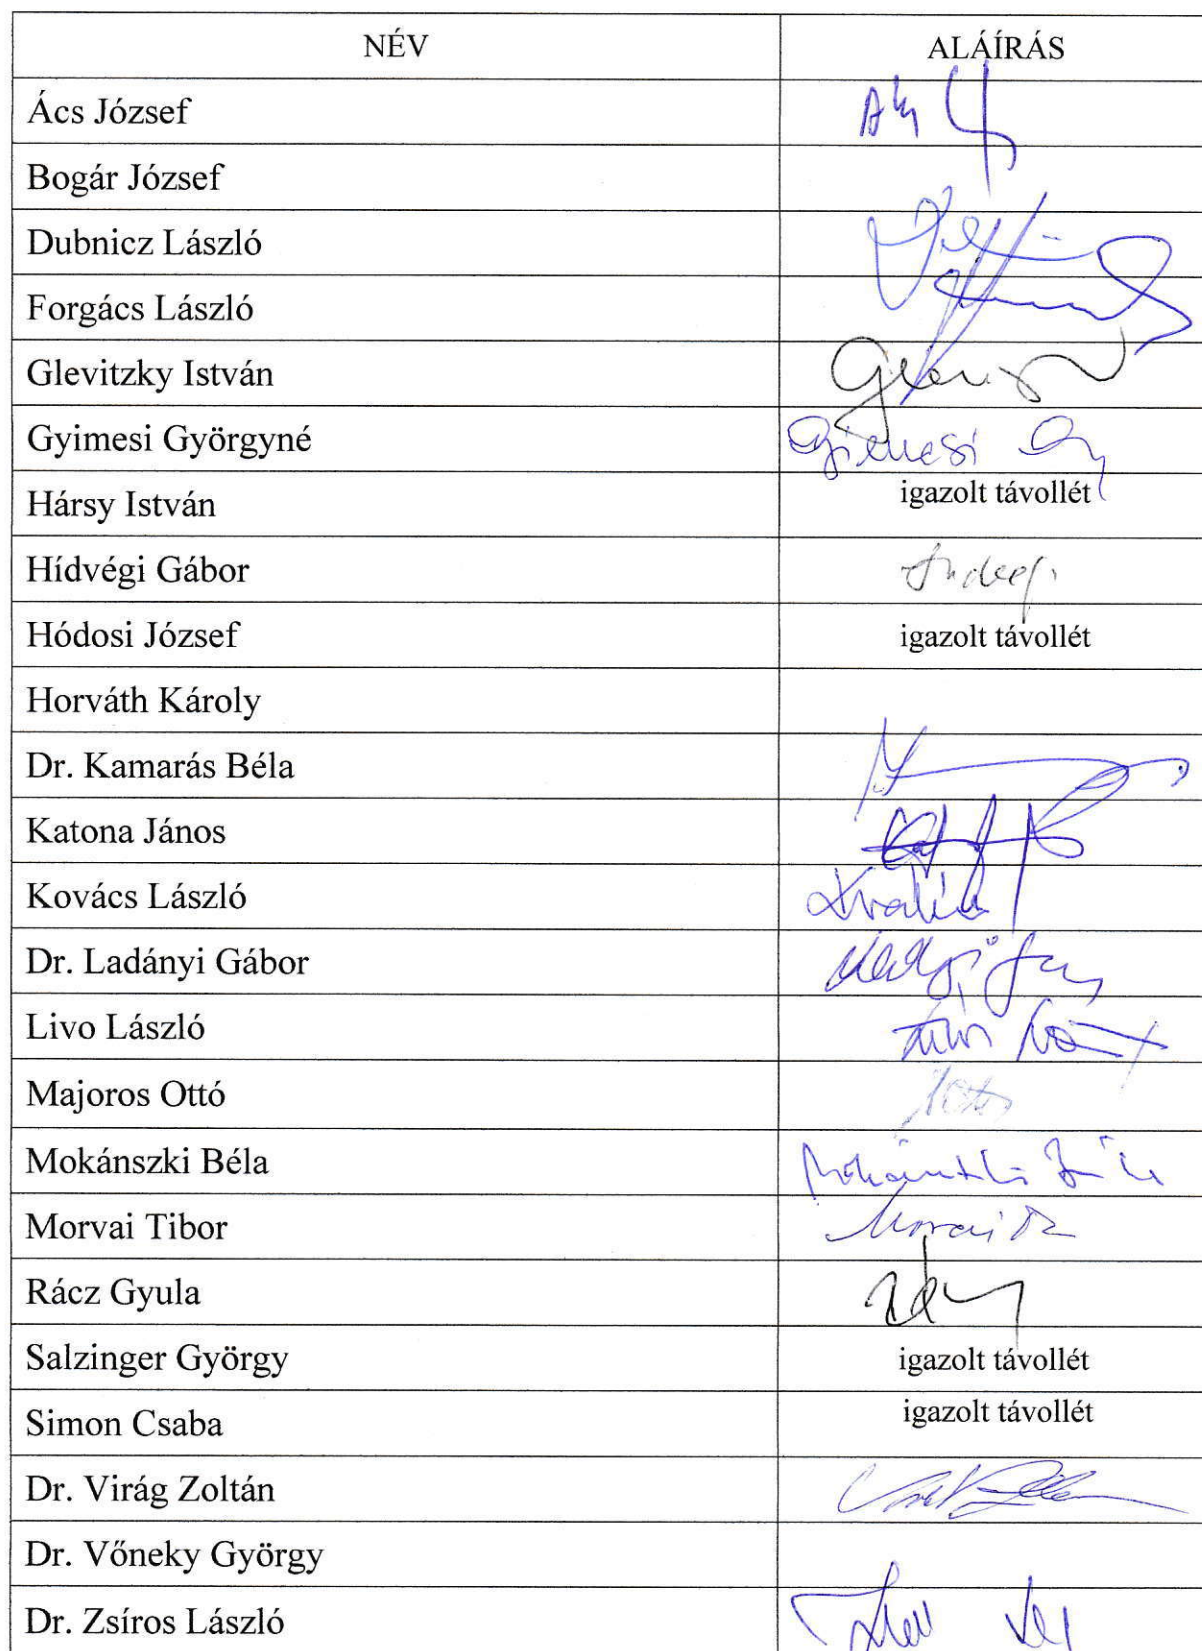 NÉV ALÁÍRÁS
Ács József
Bogár József
Dubnicz László
Forgács László
Glevitzky István
Gyimesi Györgyné Gyimesi Gy
Hársy István igazolt távollét
Hídvégi Gábor
Hódosi József igazolt távollét
Horváth Károly
Dr. Kamarás Béla
Katona János
Kovács László
Dr. Ladányi Gábor
Livo László
Majoros Ottó
Mokánszki Béla Mokánszki Béla
Morvai Tibor Morvai
Rácz Gyula
Salzinger György igazolt távollét
Simon Csaba igazolt távollét
Dr. Virág Zoltán
Dr. Vőneky György
Dr. Zsíros László